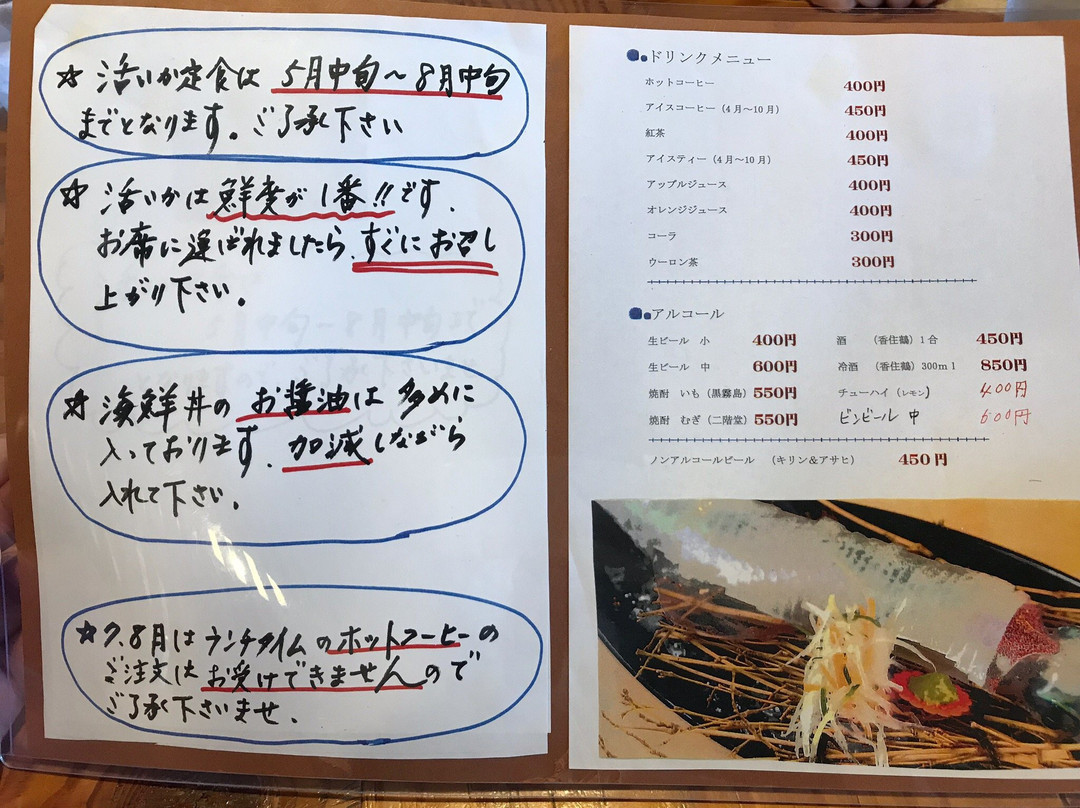 ☆ 活いか定食は 5月中旬～8月中旬
までとなります。ご了承下さい
☆ 活いかは鮮度が1番!!です、
お席に運ばれましたら、すぐにお召し
上がり下さい。
☆ 海鮮丼の お醤油は 多めに
入っております、加減しながら
入れて下さい。
☆ 7、8月は ランチタイムのホットコーヒーの
ご注文は お受けできませんので
ご了承下さいませ、
ドリンクメニュー
ホットコーヒー 400円
アイスコーヒー（4月～10月） 450円
紅茶 400円
アイスティー（4月～10月） 450円
アップルジュース 400円
オレンジジュース 400円
コーラ 300円
ウーロン茶 300円
アルコール
生ビール 小 400円 酒 （香住鶴）1合 450円
生ビール 中 600円 冷酒 （香住鶴）300ml 850円
焼酎 いも（黒霧島） 550円 チューハイ（レモン） 400円
焼酎 むぎ（二階堂） 550円 ビンビール 中 600円
ノンアルコールビール （キリン＆アサヒ） 450円